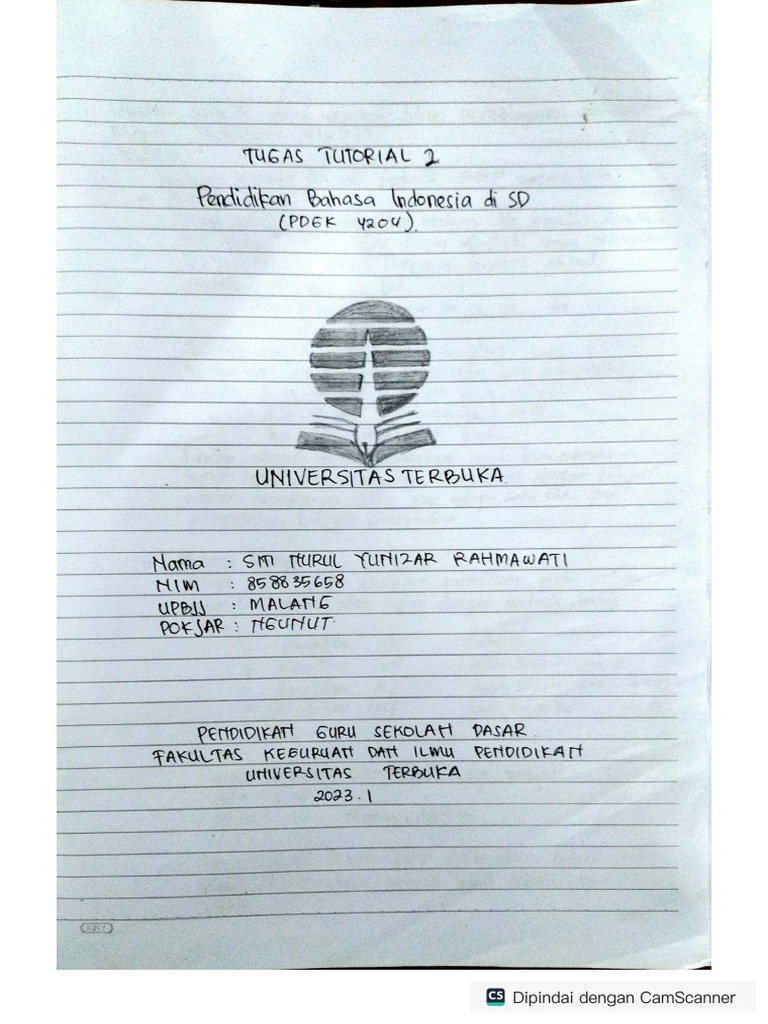 TUGAS TUTORIAL 2
Pendidikan Bahasa Indonesia di SD
(PDGK 4204).
UNIVERSITAS TERBUKA
Nama : SITI NURUL YUNIZAR RAHMAWATI
NIM : 858835658
UPBJJ : MALANG
POKJAR : NGUNUT
PENDIDIKAN GURU SEKOLAH DASAR
FAKULTAS KEGURUAN DAN ILMU PENDIDIKAN
UNIVERSITAS TERBUKA
2023.1
KIKY
CS Dipindai dengan CamScanner